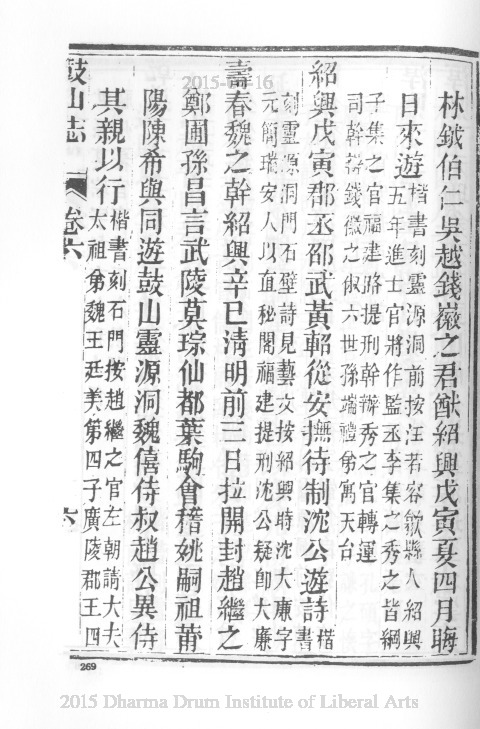 林鉞伯仁吳越錢𡽪之君猷紹興戊寅夏四月晦
日來遊楷書刻靈源洞前按汪若容歙縣人紹興
五年進士官將作監丞李集之秀之皆綱
子集之官福建路提刑幹辦秀之官轉運
司幹辦錢𡽪之俶六世孫端禮弟寓天台
紹興戊寅郡丞邵武黃軺從安撫待制沈公遊詩楷書
刻靈源洞門石壁詩見藝文按紹興時沈大廉字
元簡瑞安人以直秘閣福建提刑沈公疑卽大廉
壽春魏之幹紹興辛巳清明前三日拉開封趙繼之
鄭圃孫昌言武陵莫琮仙都葉駒會稽姚嗣祖莆
陽陳希與同遊鼓山靈源洞魏僖侍叔趙公異侍
其親以行楷書刻石門按趙繼之官左朝請大夫
太祖弟魏王廷美第四子廣陵郡王四
鼓山志
卷六
六
269
2015 Dharma Drum Institute of Liberal Arts